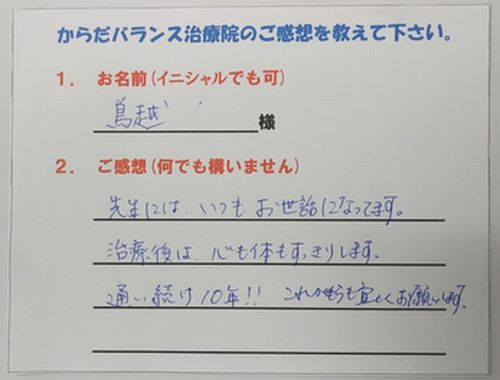 からだバランス治療院のご感想を教えて下さい。
1. お名前(イニシャルでも可)
鳥越 様
2. ご感想(何でも構いません)
先生には、いつもお世話になってます。
治療後は、心も体もすっきりします。
通い続け10年!! これからも宜しくお願いします。